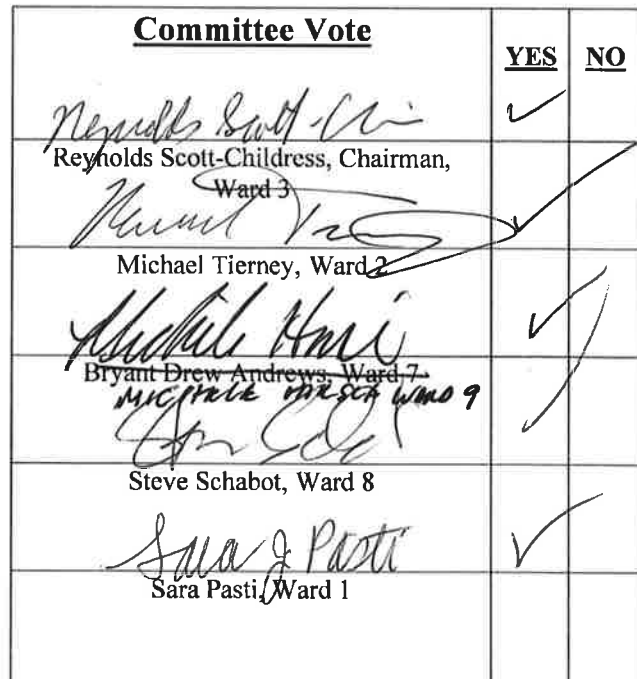 Committee Vote
YES NO
Reynolds Scott-Chi
Reynolds Scott-Childress, Chairman,
Ward 3
Michael Tierney, Ward 2
Bryant Drew Andrews, Ward 7
MICHELE HIRSCH WARD 9
Steve Schabot, Ward 8
Sara J Pasti
Sara Pasti, Ward 1